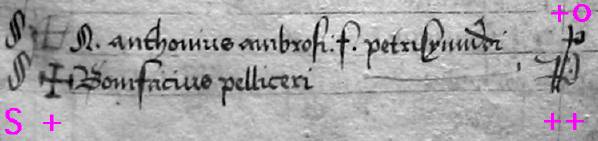 +o
N. anthonius ambrosi: f. petri
Bonifacius pelliceri
S + ++